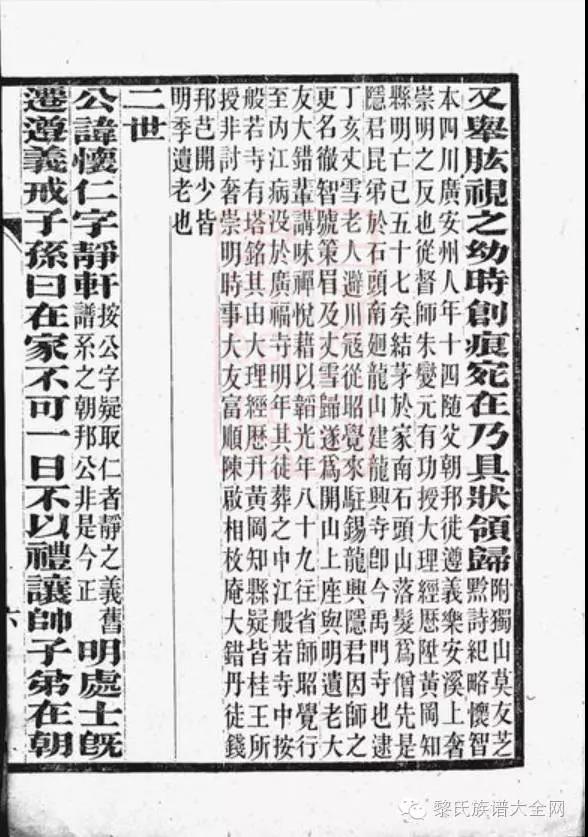 又舉肱視之幼時創痕宛在乃具狀領歸
附獨山莫友芝
黔詩紀略懷智
本四川廣安州人年十四随父朝邦徙遵義樂安溪上奢
崇明之反也從督師朱燮元有功授大理經歴陞黃岡知
縣明亡已五十七矣結茅於家南石頭山落髮爲僧先是
隱君昆弟於石頭南廻龍山建龍興寺卽今禹門寺也逮
丁亥丈雪老人避川冦從昭覺來駐錫龍興隱君因師之
更名徹智號策眉及丈雪歸遂爲開山上座與明遺老大
友大錯輩講味禪悅藉以韜光年八十九徃省師昭覺行
至内江病没於廣福寺明年其徒葬之中江般若寺中按
般若寺有塔銘其由大理經歴升黃岡知縣疑皆桂王所
授非討奢崇明時事大友富順陳啟相枚庵大錯丹徒錢
邦芑開少皆
明季遺老也
二世
公諱懷仁字靜軒
按公字疑取仁者靜之義舊
譜系之朝邦公非是今正
明處士旣
遷遵義戒子孫曰在家不可一日不以禮讓帥子弟在朝
六
黎氏族谱大全网